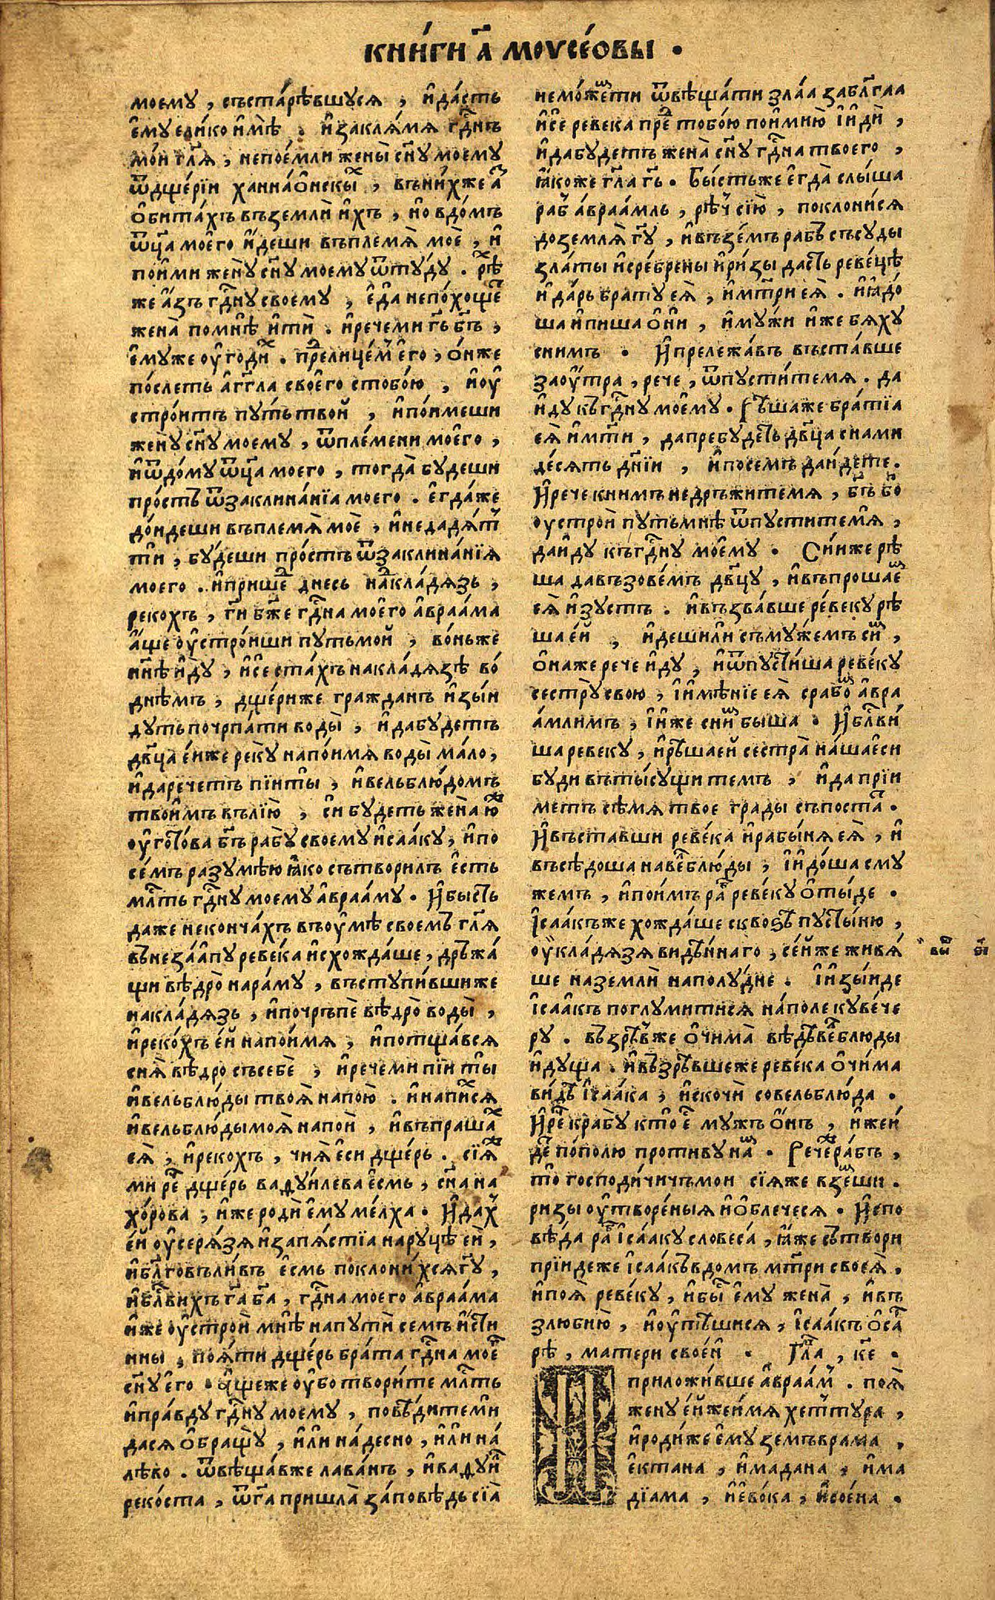 книги а҃ моѵсеовы .
моему , състаревшуся , идасть
ему елико име . изаклямя гд҃нъ
мои гл҃я , непоемли жены сн҃у моему
ѿдщерїи ханнаонскых , внихже аз
обитахъ вземли ихъ , но вдомъ
ѿц҃а моего идеши въплемя мое , и
поими жену сн҃у моему ѿтуду . рѣ
же азъ гд҃ну своему , еда непохоще
жена помнѣ ити . иречеми гь҃ бг҃ъ ,
емуже угодих . предлицем его , онже
послеть агг҃ла своего стобою , иоу
строитъ путь твой , ипоимеши
жену сн҃у моему , ѿплемени моего ,
иѿдому ѿц҃а моего , тогда будеши
простъ ѿзаклинанїа моего . егдаже
доидеши въплемя мое , инедадят
ти , будеши простъ ѿзаклинанїя
моего . ипришед днесь накладязь ,
рекохъ , ги҃ бж҃е гд҃на моего авраама
аще оустроиши путьмой , воньже
нн҃ѣ иду , исе стахъ накладязѣ во
днѣмъ , дщериже гражданъ изыи
дуть почрпати воды , идабудетъ
дв҃ца еиже реку напоимя воды мало ,
идаречетъ пїиты , ивельблюдомъ
твоимъ вълїю , си будеть жена юже
оуготова бг҃ъ рабу своему исааку , ипо
семъ разумѣю яко сътворилъ есть
млс҃ть гд҃ну моему аврааму . Ибысть
даже некончахъ въоумѣ своемъ гл҃я
вънезаапу ревека исхождаше , дръжа
щи вѣдро нараму , въступивши же
накладязь , ипочръпе вѣдро воды ,
ирекохъ ей напоимя , ипотщавса
сня вѣдро съсебе , иречеми пїи ты
ивельблюды твоя напою . инапися
ивельблюдымоя напои , ивъпрашах
ея , ирекохъ , чия еси дщерь . сїяж
ми ре дщерь вафуилева есмь , сн҃а на
хорова , иже роди ему мелха . Идах
ей оусерязя изапястїа наруцѣ ей ,
ибл҃говоливъ есмь поклонихсягу҃ ,
ибл҃вихъ га҃ ба҃ , гд҃на моего авраама
иже оустрои мнѣ напути семъ исти
нны , пояти дщерь брата гд҃на мое
сн҃у его . ащеже оубо творите млс҃ть
иправду гд҃ну моему , повѣдитеми
дася обращу , или на десно , или на
лѣво . ѿвѣщавже лаванъ , ивафуил
рекоста , ѿга҃ пришла заповѣдь сїа
неможети ѿвѣщати зла заблг҃аа
исе ревека пред тобою поимию ииди ,
идабудетъ жена сн҃у гд҃на твоего ,
якоже гл҃а гь҃ . Бысть же егда слыша
раб авраамль , рѣч сїю , поклонися
доземля гу҃ , ивъземъ рабъ съсуды
златы исребрены иризы дасть ревецѣ
идарь брату ея , имт҃ри ея . ияядо
ша ипиша они , имужи иже бяху
снимъ . Ипрележавъ въставше
заоутра , рече , ѿпуститемя . да
иду къгд҃ну моему . Рѣшаже братїа
ея имт҃и , дапребудеть дв҃ца снами
десять дн҃їи , ипосемъ даидете .
Ирече книмъ недръжитемя , бг҃ъ бо
оустрои путьмнѣ ѿпустите мя ,
даиду къгд҃ну моему . Ониже рѣ
ша давъзовемъ дв҃цу , ивъпрошаем
ея изустъ . ивъзвавше ревеку рѣ
ша ей , идешили съмужемъ сим ,
онаже рече иду , иѿпустиша ревеку
сестру свою , иимѣнїе ея срабом авра
амлимъ , ииже сним быша . Ибл҃ви
ша ревеку , ирѣшаей сестра нашаеси
буди вътысущи темъ , ида прїи
метъ сѣмя твое грады съпостат .
Ивъставши ревека ирабыняея , и
въсѣдоша навелблюды , иидоша сму
жемъ , ипоимъ раб ревеку отыде .
Ісаакъже хождаше сквозѣ пустыню ,
оукладязя видѣннаго , сейже живя
ше наземли наполудне . Иизыиде
ісаакъ поглумитися наполе кувече
ру . възрѣвже очима вѣдѣвелблюды
идуща . ивъзрѣвшеже ревека очима
видѣ ісаака , искочи совельблюда .
Ире крабу кто е мужъ онъ , ижеи
де пополю противу нам . Речераб ,
то господичичьмои сїяже вземши .
ризы оутвореныя иоблечеся . Испо
вѣда раб ісааку словеса , яже сътвори
прїидеже ісаакъ вдомъ мт҃ри своея ,
ипоя ревеку , ибы ему жена , ивъ
злюбию , иоутѣшися , ісаакъ оса
рѣ , матери своеи . Глава , ке .
приложивше авраам . поя
жену ейжеимя хеттура ,
иродиже ему земъврама ,
ектана , имадана , има
дїама , иевока , исоена .